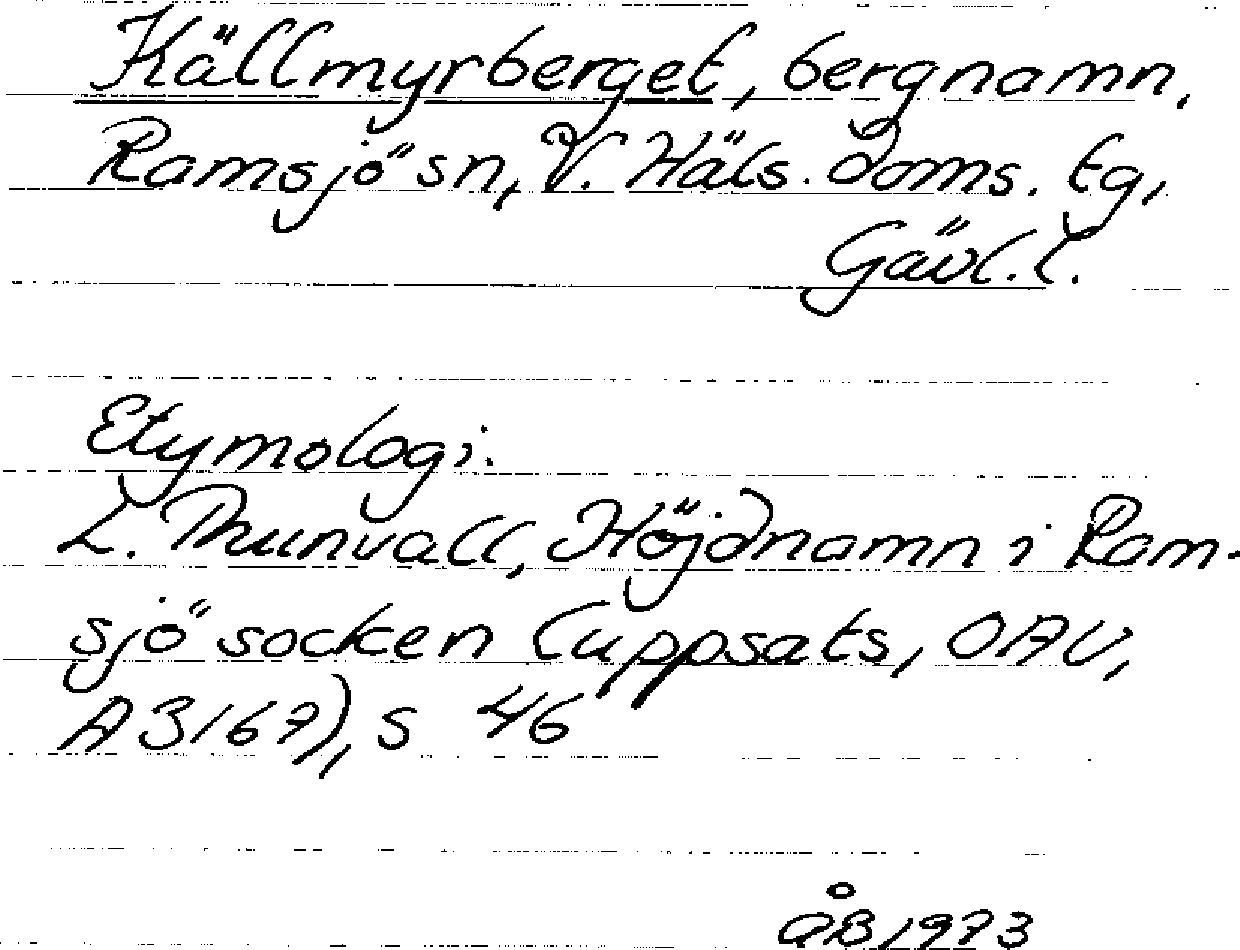 Källmyrberget, bergnamn,
Ramsjö sn, V. Häls. doms. tg,
Gävl. l.
Etymologi.
L. Thunvall, Höjdnamn i Ram-
sjö socken (uppsats, OAU,
A3167), s 46
ÅB 1973